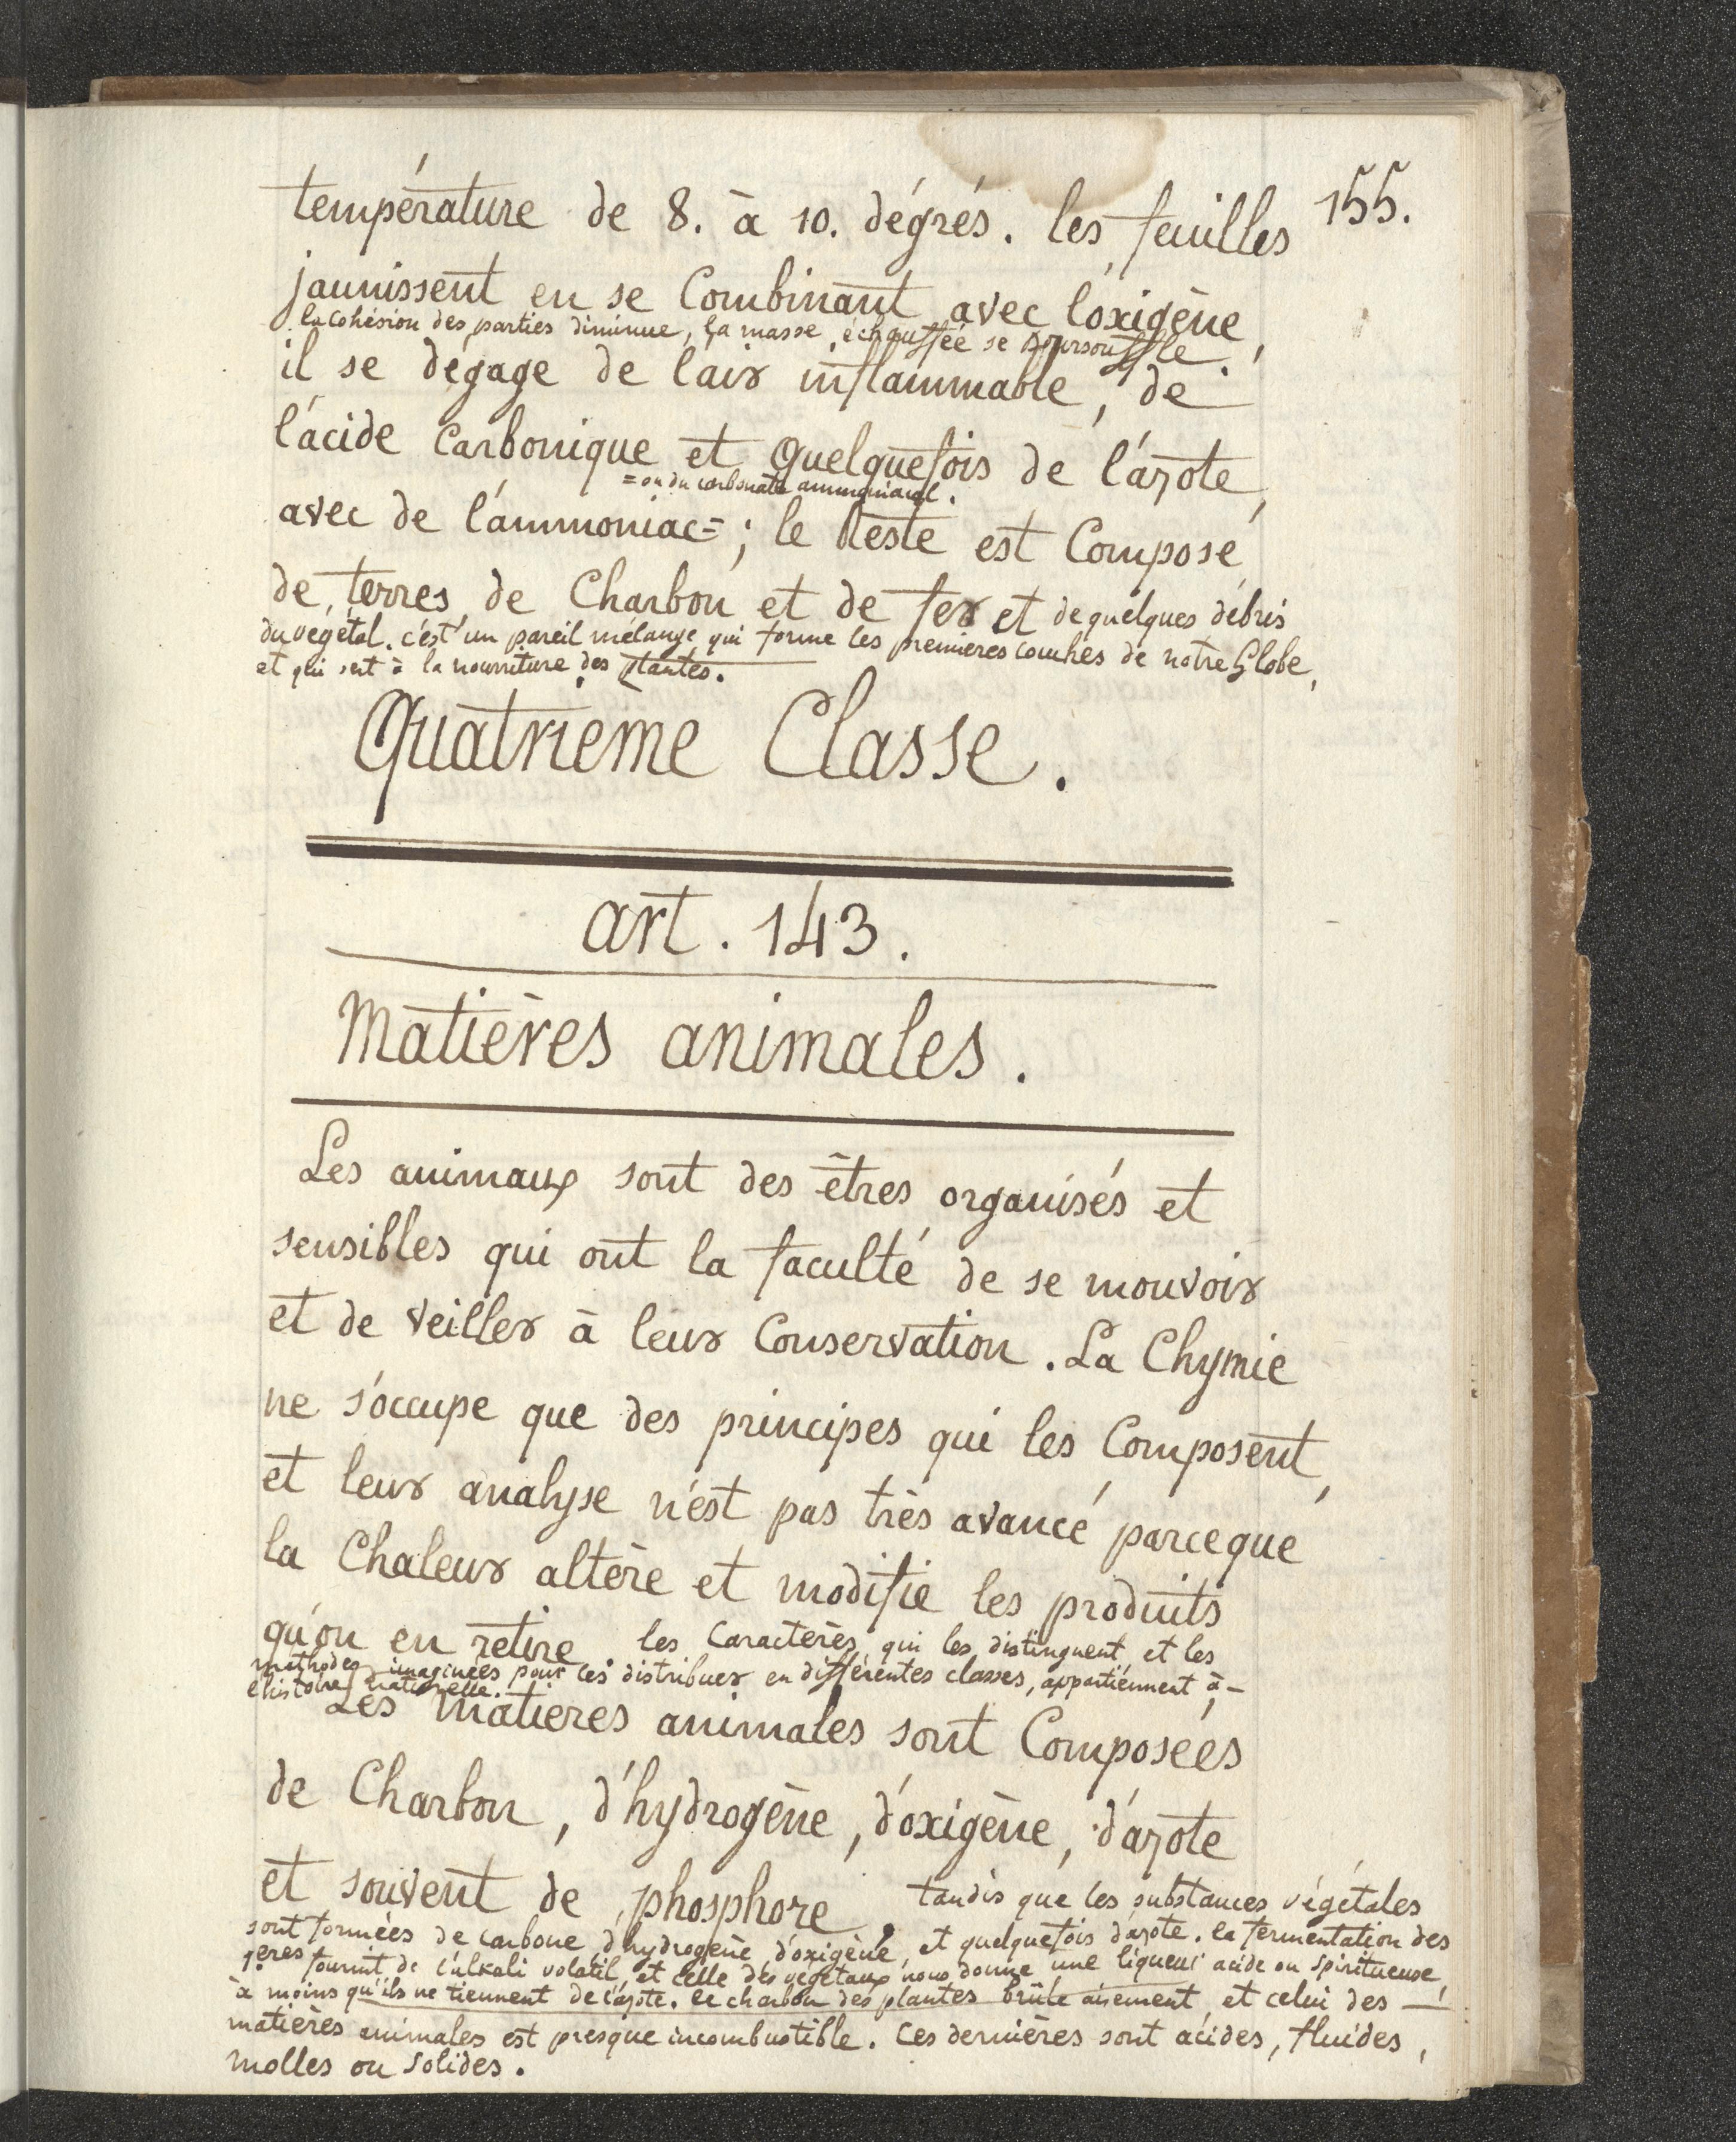 155.
température de 8. à 10. dégrés. les feuilles
jaunissent en se Combinant avec l'oxigène,
la cohésion des parties diminue, la masse échauffée se boursouffle.
il se dégage de l'air inflammable, de
l'acide Carbonique et Quelquefois de l'azote,
= ou du carbonate ammoniacal.
avec de l'ammoniac=; le Reste est Composé
de terres de Charbon et de fer et de quelques débris
du végétal. c'est un pareil mélange qui forme les premières couches de notre Globe,
et qui sert à la nourriture des plantes.
Quatrieme Classe.
art. 143.
Matières animales.
Les animaux sont des êtres organisés et
sensibles qui ont la faculté de se mouvoir
et de veiller à leur Conservation. La Chymie
ne s'occupe que des principes qui les Composent,
et leur analyse n'est pas très avancé parceque
la Chaleur altère et modifie les produits
qu'on en retire. les Caractères qui les distinguent et les
méthodes imaginées pour les distribuer en différentes classes, appartiennent à -
l'histoire naturelle.
Les matières animales sont Composées
de Charbon, d'hydrogène, d'oxigène, d'azote
et souvent de phosphore, tandis que les substances végétales
sont formées de carbone, d'hydrogène, d'oxigène, et quelquefois d'azote. la fermentation des
1ères fournit de l'alkali volatil, et celle des végétaux nous donne une liqueur acide ou spiritueuse,
à moins qu'ils ne tiennent de l'azote. le charbon des plantes brûle aisement, et celui des —
matières animales est presque incombustible. Ces dernières sont acides, fluides,
molles ou solides.